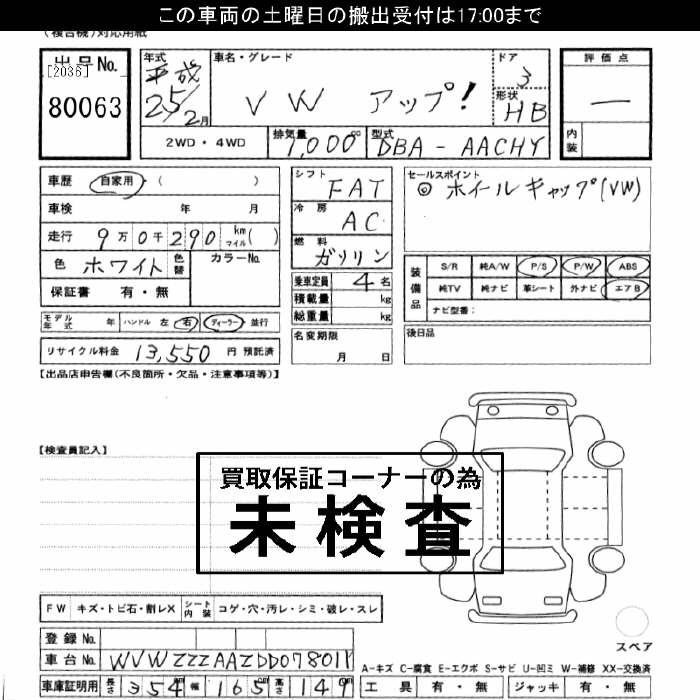 この車両の土曜日の搬出受付は17:00まで
(複合機)対応用紙
出品No.
[2036]
80063
年式
平成
25/2月
車名・グレード
VW アップ!
ドア
3
形状
HB
評価点
—
内装
2WD・4WD
排気量
1,000cc
型式
DBA-AACHY
車歴 自家用・( )
車検 年 月
走行 9万0千290 km マイル( )
色 ホワイト 色替
カラーNo.
保証書 有・無
シフト
FAT
冷房
AC
燃料
ガソリン
乗車定員 4名
積載量 kg
総重量 kg
セールスポイント
◎ ホイールキャップ(VW)
装備品
S/R 純A/W P/S P/W ABS
純TV 純ナビ 革シート 外ナビ エアB
ナビ型番:
モデル年式 年 ハンドル 左・右 ディーラー・並行
リサイクル料金 13,550 円 預託済
名変期限
月 日
後日品
【出品店申告欄(不良箇所・欠品・注意事項等)】
【検査員記入】
買取保証コーナーの為
未検査
FW キズ・トビ石・割レX シート内装 コゲ・穴・汚レ・シミ・破レ・スレ
スペア
登録No.
車台No. WVWZZZAAZDD078011
車庫証明用 長さ 354 幅 165 高さ 149
A-キズ C-腐食 E-エクボ S-サビ U-凹ミ W-補修 XX-交換済
工具 有・無 ジャッキ 有・無